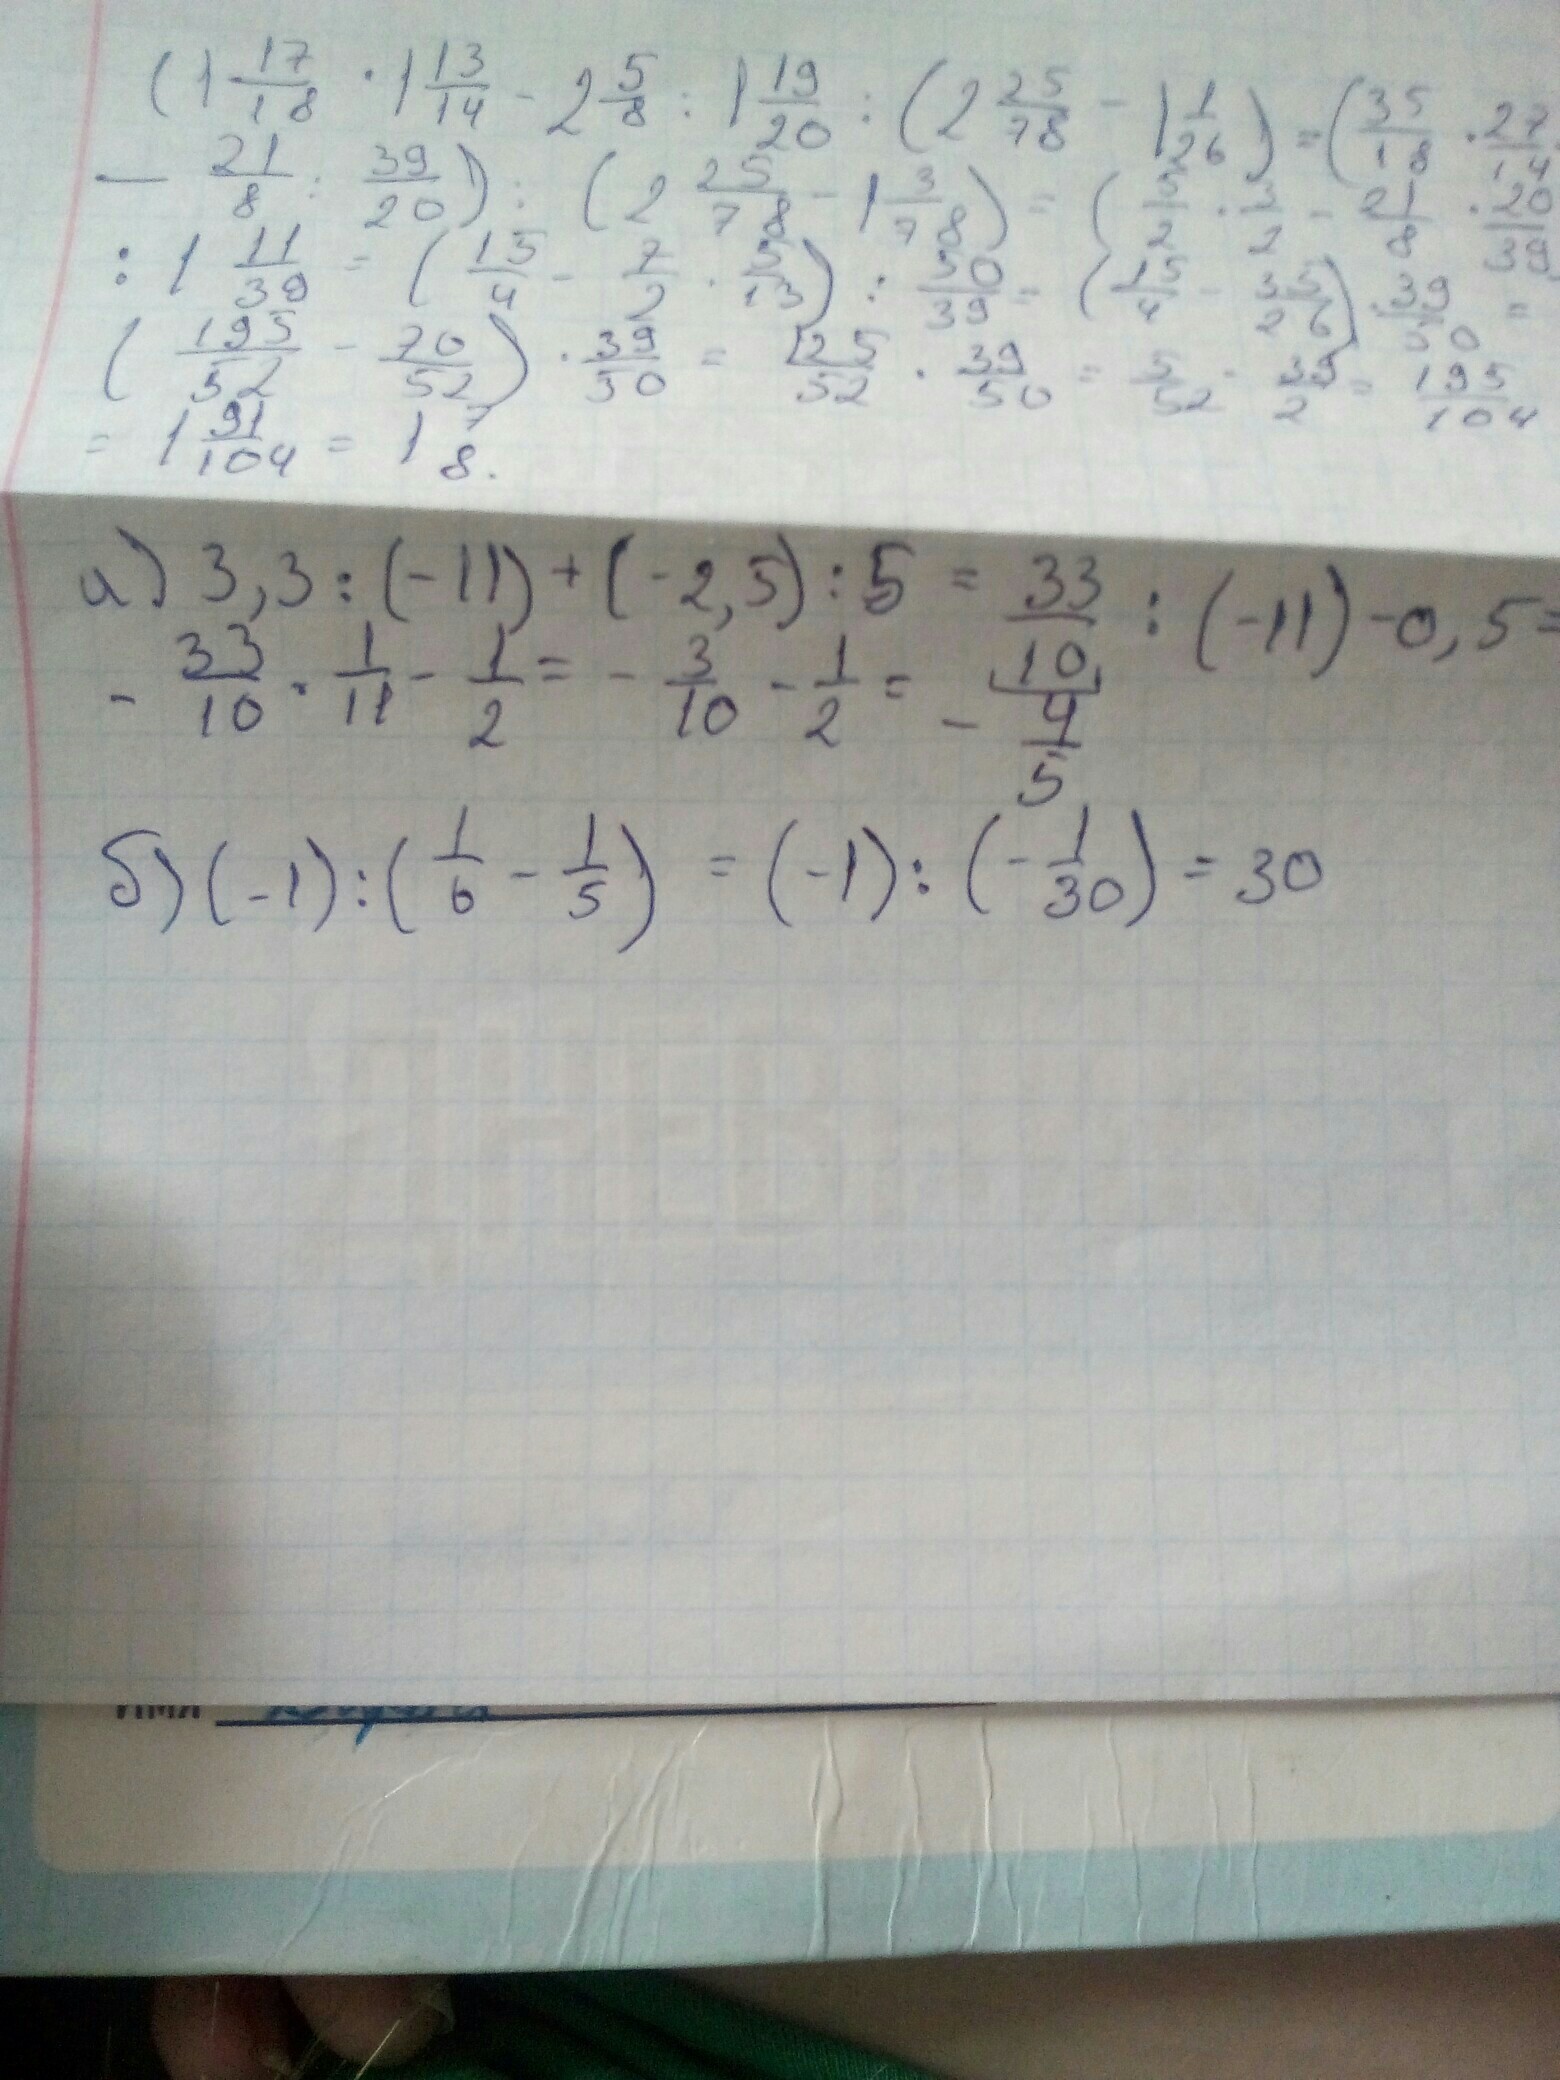 (1 17/18 · 1 13/14 - 2 5/8 : 1 19/20 : (2 25/78 - 1 1/26) = (35/18 · 27/14
- 21/8 : 39/20) : (2 25/78 - 1 3/78) = (5/2 · 3/2 - 21/8 · 20/39
: 1 11/39 = (15/4 - 7/2 · 5/13) : 50/39 = (15/4 - 35/26) · 39/50 =
(195/52 - 70/52) · 39/50 = 125/52 · 39/50 = 5/52 · 39/2 = 195/104
= 1 91/104 = 1 7/8.
а) 3,3 : (-11) + (-2,5) : 5 = 33/10 : (-11) - 0,5 =
- 33/10 · 1/11 - 1/2 = - 3/10 - 1/2 = - 4/5
б) (-1) : (1/6 - 1/5) = (-1) : (- 1/30) = 30
ИМЯ